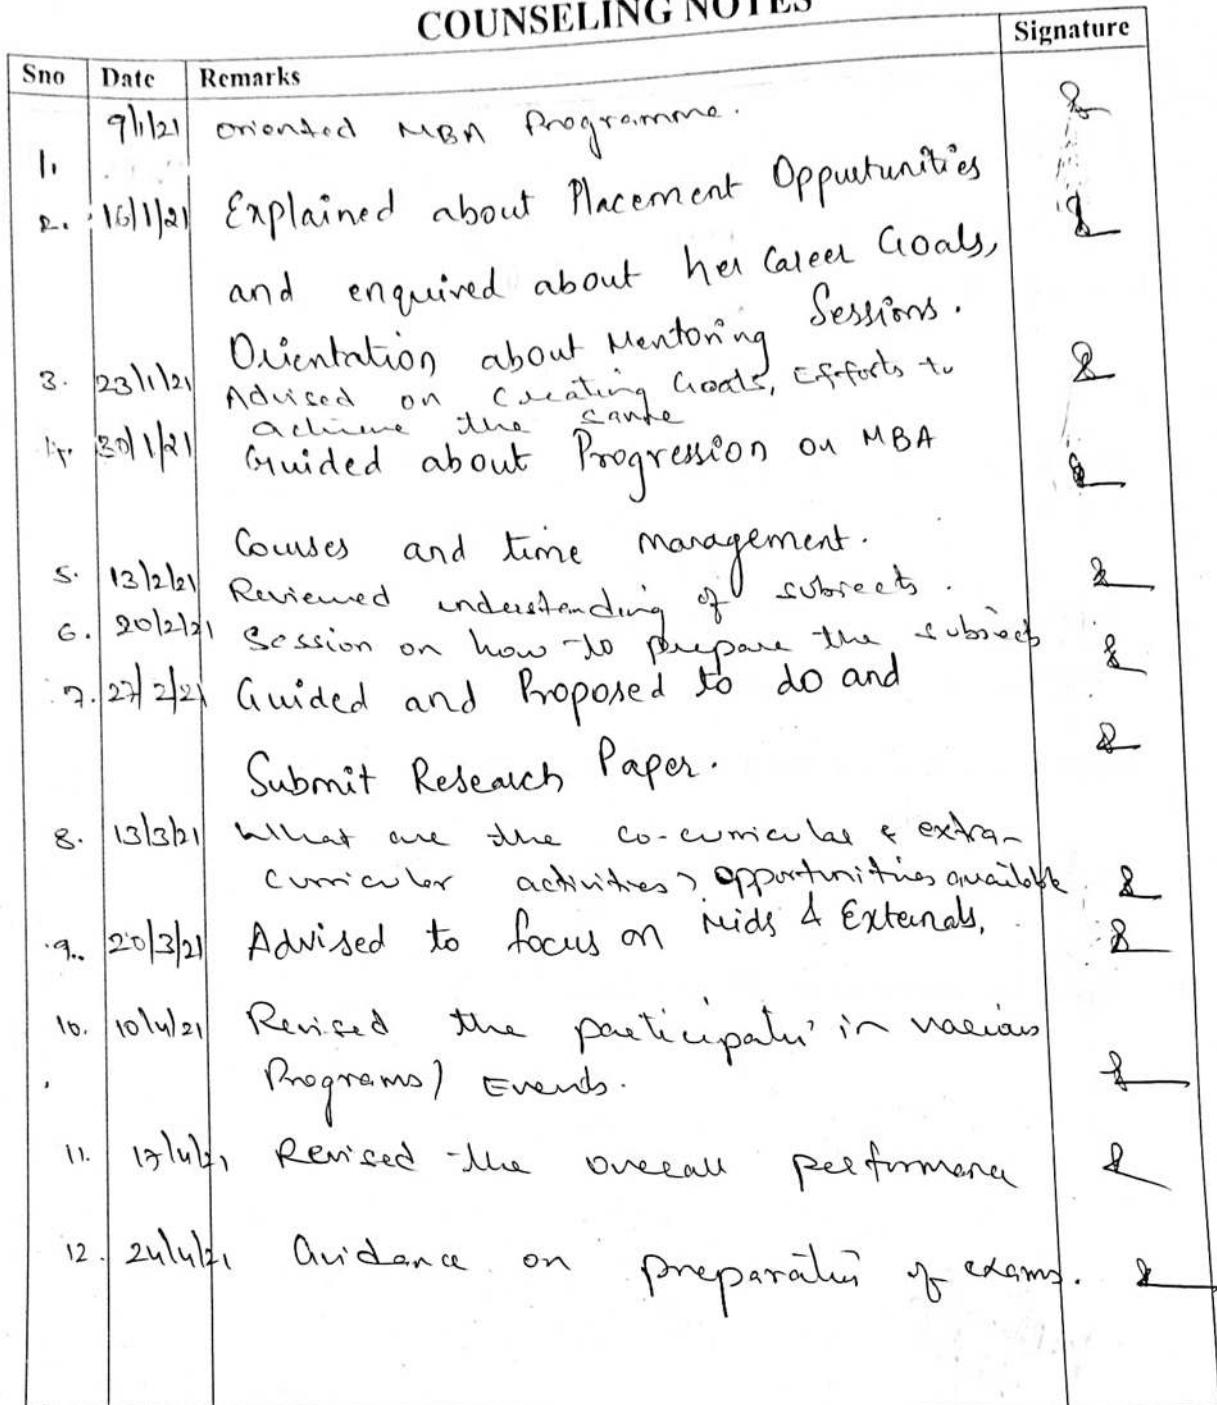 COUNSELING NOTES
Sno Date Remarks Signature
1. 9/1/21 oriented MBA Programme.
2. 16/1/21 Explained about Placement Oppurtunities
and enquired about her Career Goals,
Orientation about Mentoring Sessions.
3. 23/1/21 Advised on Creating Goals, Efforts to
achieve the same
4. 30/1/21 Guided about Progression on MBA
Courses and time management.
5. 13/2/21 Reviewed understanding of subjects.
6. 20/2/21 Session on how to prepare the subject
7. 27/2/21 Guided and Proposed to do and
Submit Research Paper.
8. 13/3/21 What are the co-curricular & extra-
curricular activities, opportunities available.
9. 20/3/21 Advised to focus on Mids & Externals.
10. 10/4/21 Revised the in various
Programs/ Events.
11. 17/4/21 Revised the overall
12. 24/4/21 Guidance on of exams.